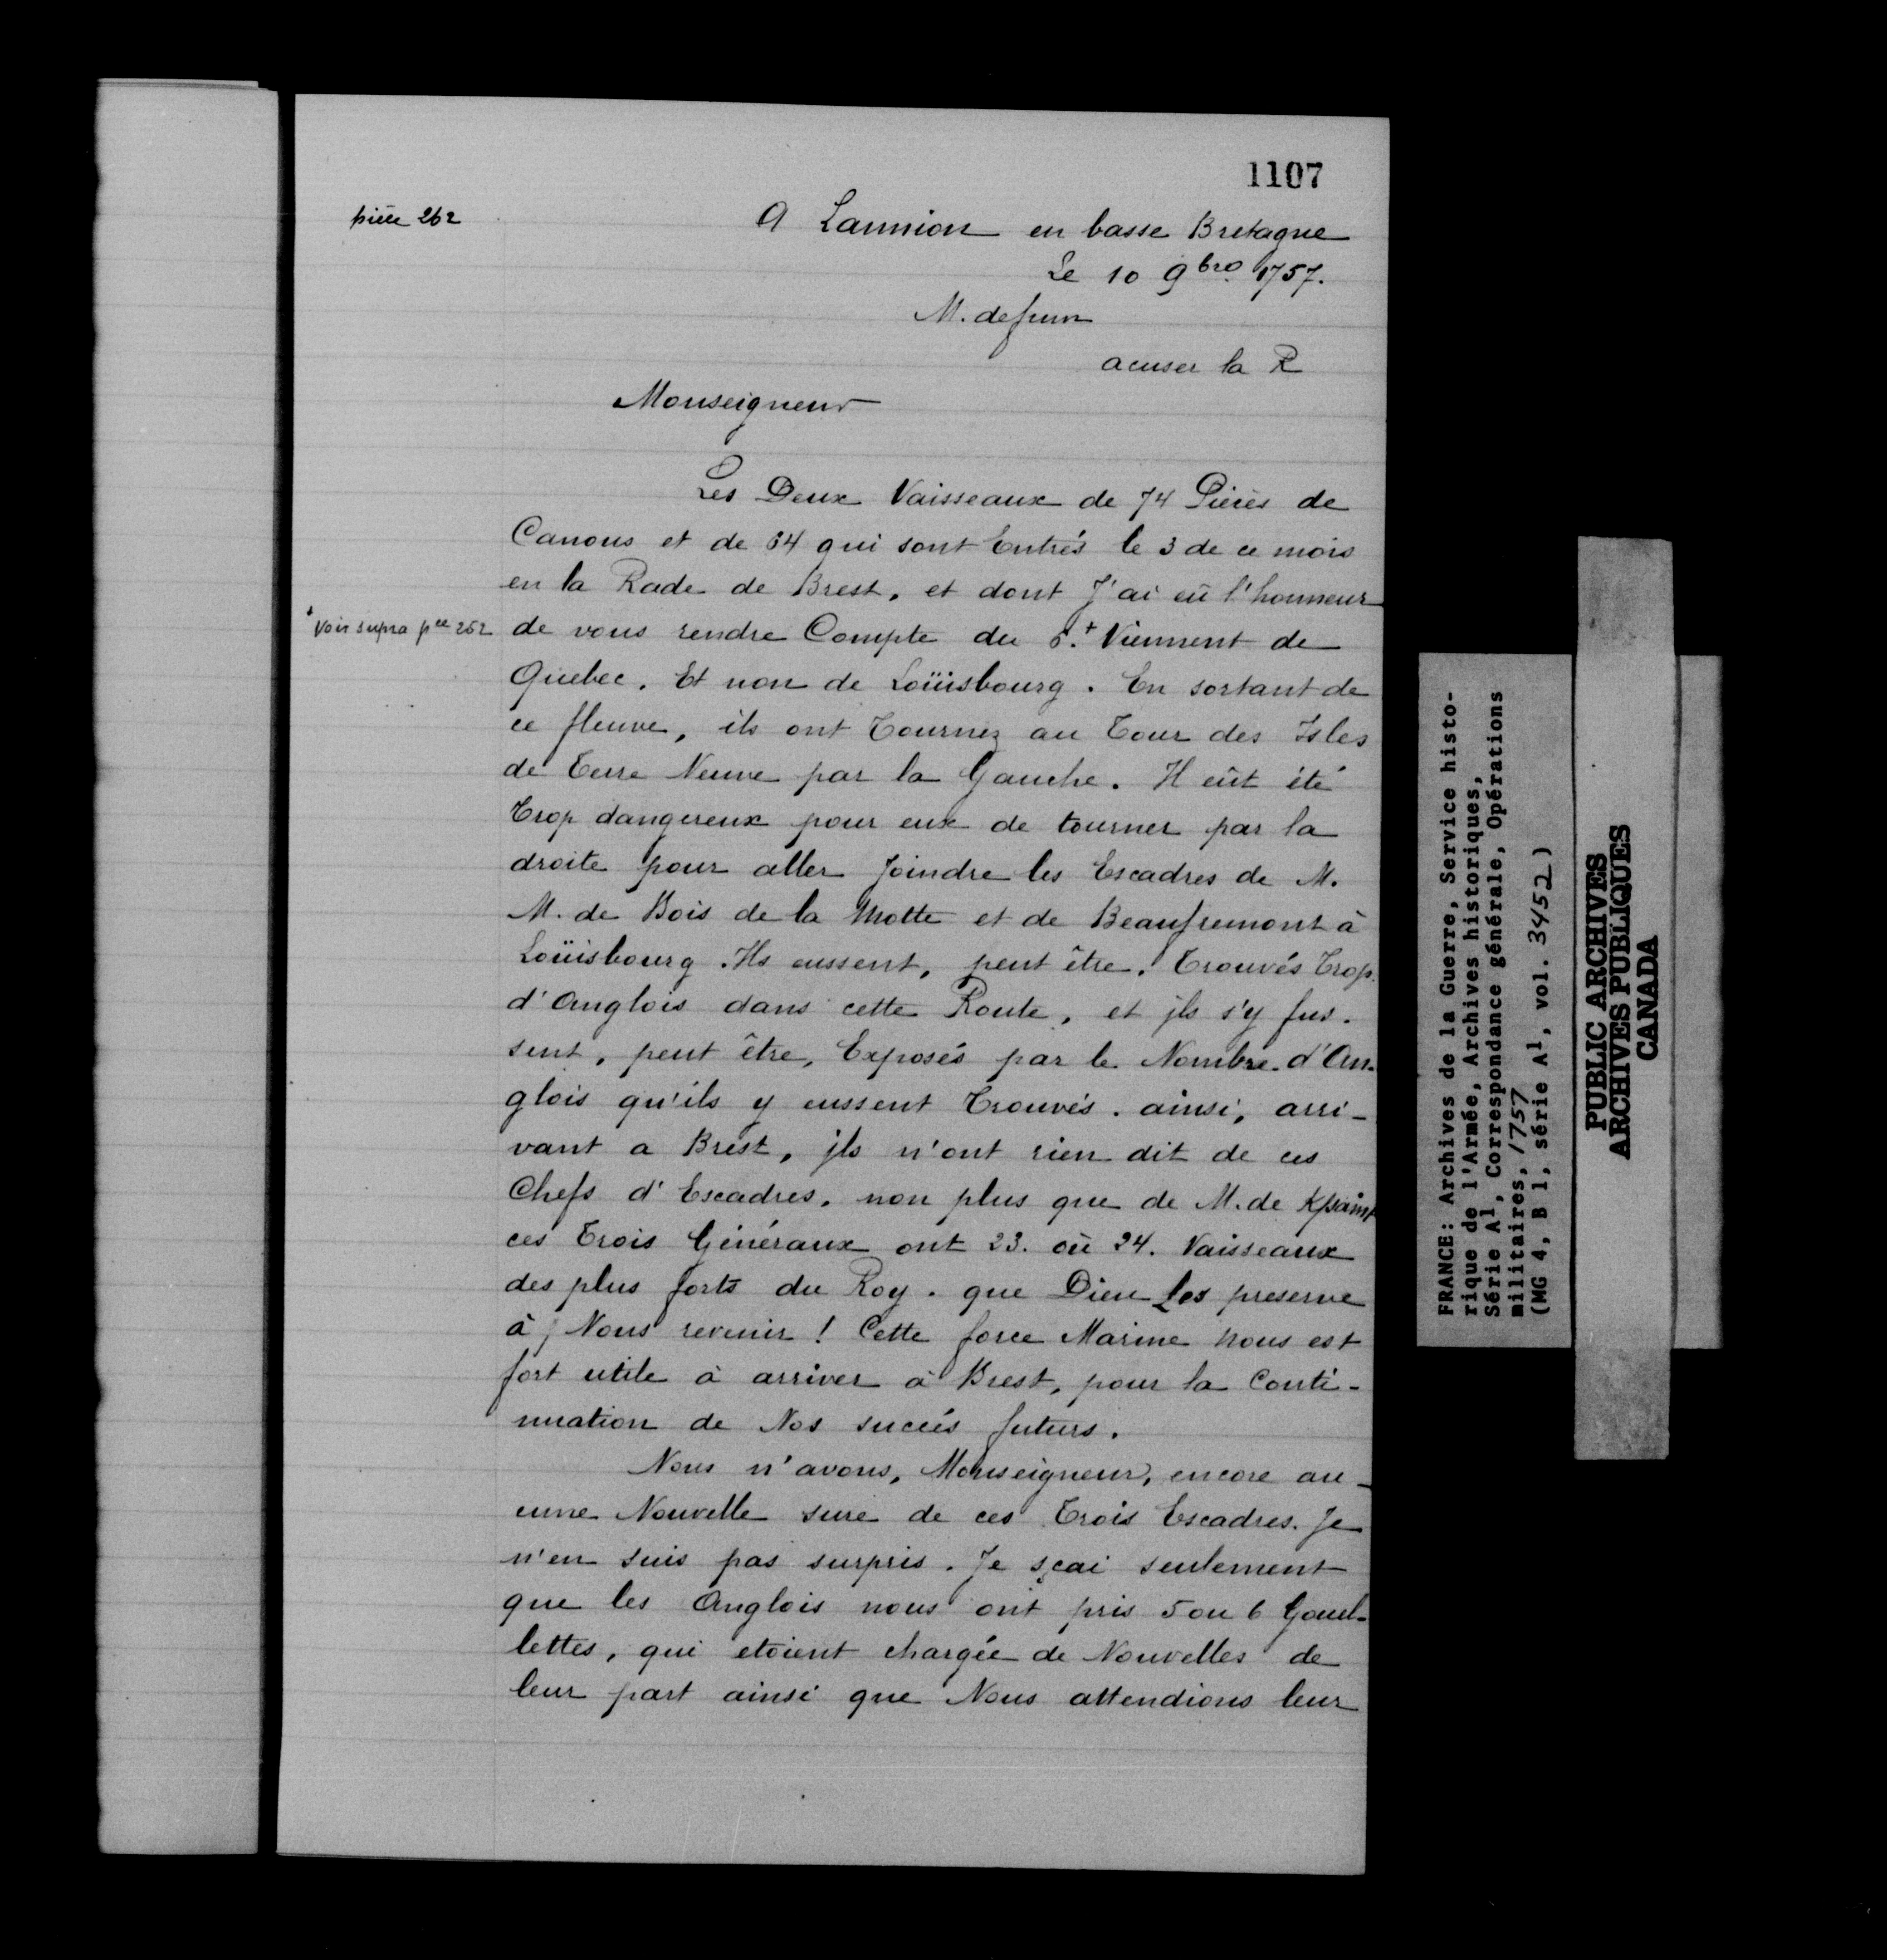 1107
pièce 262
A Lannion en basse Bretagne
Le 10 9bre 1757.
M. de
acuser la R
Monseigneur
Les Deux Vaisseaux de 74 Pièces de
Canons et de 64 qui sont Entrés le 3 de ce mois
en la Rade de Brest, et dont J'ai eû l'honneur
+ Voir supra pce 252
de vous rendre Compte du 6.+ Viennent de
Quebec. Et non de Loüisbourg. En sortant de
ce fleuve, ils ont Tournez au Tour des Isles
de Terre Neuve par la Gauche. Il eût été
Trop dangereux pour eux de tourner par la
droite pour aller Joindre les Escadres de M.
M. de Bois de la Motte et de Beaufremont à
Loüisbourg. Ils eussent, peut être, Trouvés Trop
d'Anglois dans cette Route, et jls s'y fus-
sent, peut être, Exposés par le Nombre d'An-
glois qu'ils y eussent Trouvés. ainsi, arri-
vant a Brest, jls n'ont rien dit de ces
Chefs d'Escadres, non plus que de M. de Kpsaint
ces Trois Généraux ont 23. où 24. Vaisseaux
des plus forts du Roy. que Dieu Les preserve
à Nous revenir ! Cette force Marine nous est
fort utile à arriver à Brest, pour la Conti-
nuation de Nos succés futurs.
Nous n'avons, Monseigneur, encore au-
cune Nouvelle sure de ces Trois Escadres. Je
n'en suis pas surpris. Je sçai seulement
que les Anglois nous ont pris 5 ou 6 Gouel-
lettes, qui etoient chargée de Nouvelles de
leur part ainsi que Nous attendions leur
FRANCE: Archives de la Guerre, Service histo-
rique de l'Armée, Archives historiques,
Série A1, Correspondance générale, Opérations
militaires, 1757
(MG 4, B 1, série A1, vol. 3452)
PUBLIC ARCHIVES
ARCHIVES PUBLIQUES
CANADA